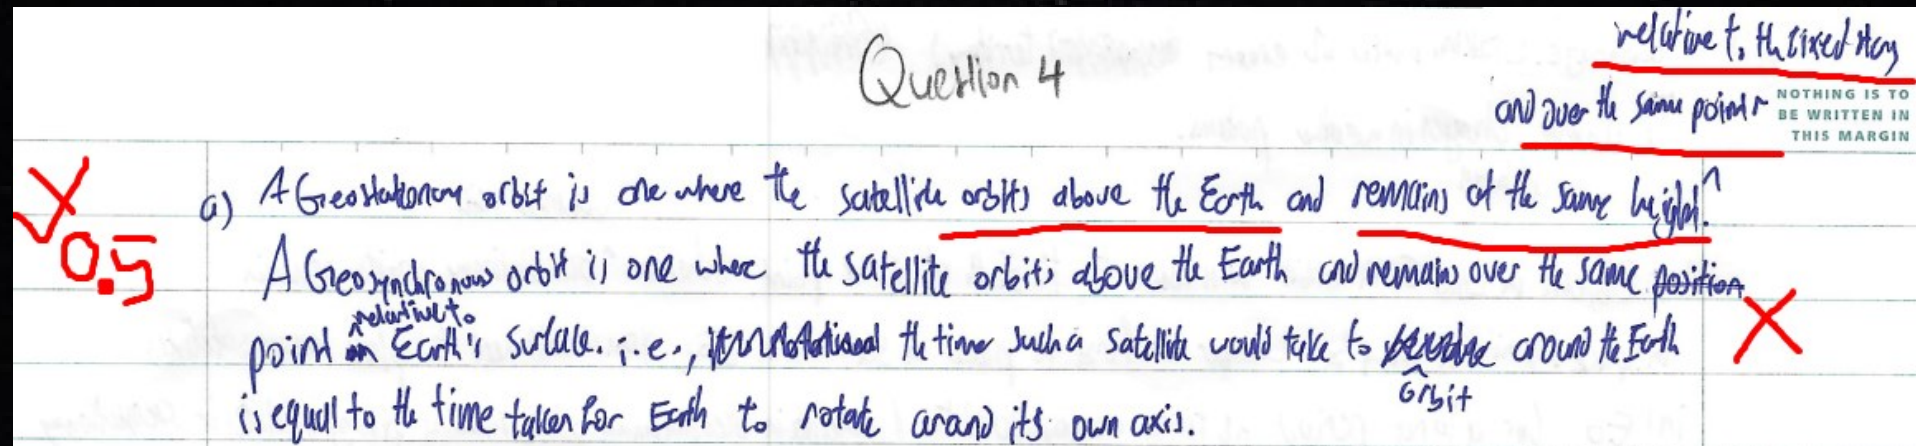 Question 4
relative to the fixed stars
and over the same point
NOTHING IS TO
BE WRITTEN IN
THIS MARGIN
0.5
a) A Geostationary orbit is one where the satellite orbits above the Earth and remains at the same height.
A Geosynchronous orbit is one where the satellite orbits above the Earth and remains over the same position
relative to
point on Earth's surface. i.e., the time such a satellite would take to around the Earth
orbit
is equal to the time taken for Earth to rotate around its own axis.